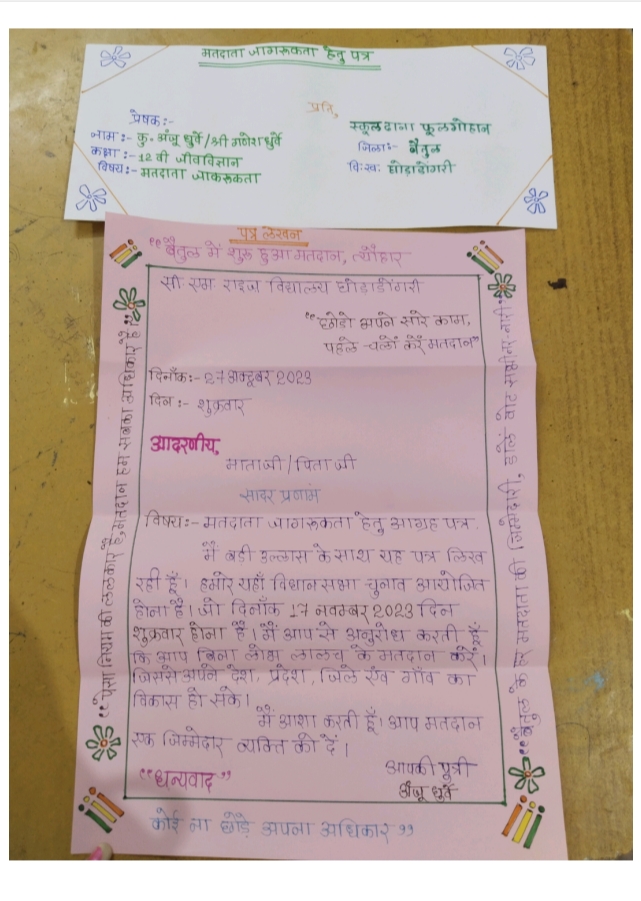 मतदाता जागरूकता हेतु पत्र
प्रेषक :-
नाम :- कु. अंजू धुर्वे / श्री गणेश धुर्वे
कक्षा :- 12 वी जीवविज्ञान
विषय :- मतदाता जाकरूकता
प्रति,
स्कूल दाना फूलगोहान
जिला :- बैतुल
वि.ख. घोड़ाडोंगरी
पत्र लेखन
"बैतुल में शुरू हुआ मतदान, त्यौहार
सी एम राइज विद्यालय घोड़ाडोंगरी
"छोडो अपने सारे काम,
पहले चलों करें मतदान"
दिनाँक :- 27 अक्टूबर 2023
दिन :- शुक्रवार
आदरणीय,
माताजी / पिताजी
सादर प्रणाम
विषय :- मतदाता जागरूकता हेतु आग्रह पत्र.
मैं बडी उल्लास के साथ यह पत्र लिख
रही हूँ। हमारे यहाँ विधानसभा चुनाव आयोजित
होना है। जो दिनाँक 17 नवम्बर 2023 दिन
शुक्रवार होना है। मैं आप से अनुरोध करती हूँ
कि आप बिना लोभ लालच के मतदान करें।
जिससे अपने देश, प्रदेश, जिले एंव गाँव का
विकास हो सके।
मैं आशा करती हूँ। आप मतदान
एक जिम्मेदार व्यक्ति को दें।
आपकी पुत्री
अंजू धुर्वे
"धन्यवाद"
कोई ना छोडे अपना अधिकार"
"पेसा नियम की ललकार है, मतदान हम सबका अधिकार है"
"बैतुल के हर मतदाता की जिम्मेदारी, डालें वोट सभी नर-नारी"